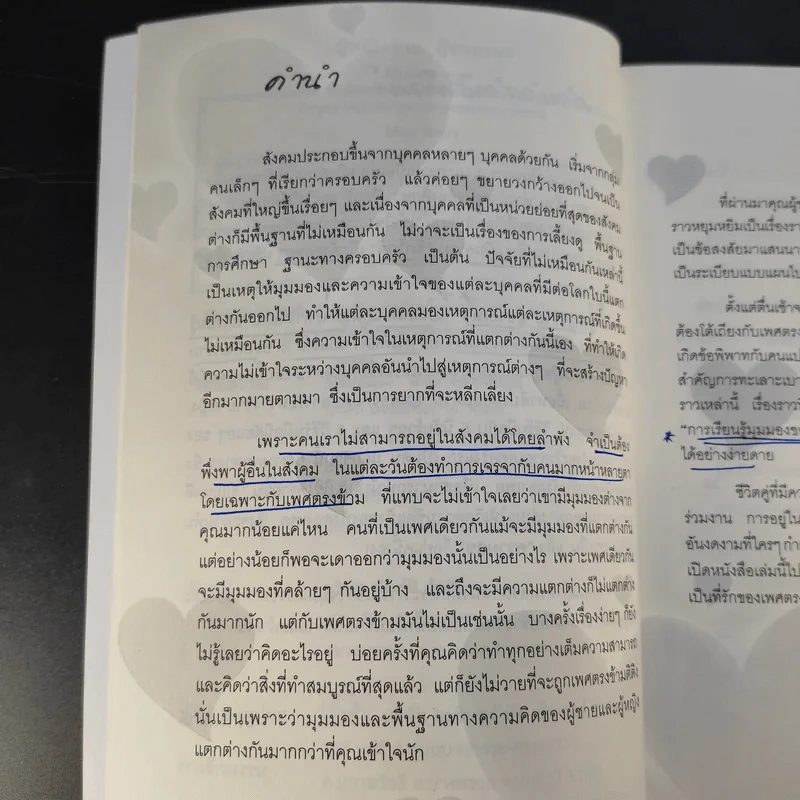 คำนำ
สังคมประกอบขึ้นจากบุคคลหลายๆ บุคคลด้วยกัน เริ่มจากกลุ่ม
คนเล็กๆ ที่เรียกว่าครอบครัว แล้วค่อยๆ ขยายวงกว้างออกไปจนเป็น
สังคมที่ใหญ่ขึ้นเรื่อยๆ และเนื่องจากบุคคลที่เป็นหน่วยย่อยที่สุดของสังคม
ต่างก็มีพื้นฐานที่ไม่เหมือนกัน ไม่ว่าจะเป็นเรื่องของการเลี้ยงดู พื้นฐาน
การศึกษา ฐานะทางครอบครัว เป็นต้น ปัจจัยที่ไม่เหมือนกันเหล่านี้
เป็นเหตุให้มุมมองและความเข้าใจของแต่ละบุคคลที่มีต่อโลกใบนี้แตก
ต่างกันออกไป ทำให้แต่ละบุคคลมองเหตุการณ์แต่ละเหตุการณ์ที่เกิดขึ้น
ไม่เหมือนกัน ซึ่งความเข้าใจในเหตุการณ์ที่แตกต่างกันนี้เอง ที่ทำให้เกิด
ความไม่เข้าใจระหว่างบุคคลอันนำไปสู่เหตุการณ์ต่างๆ ที่จะสร้างปัญหา
อีกมากมายตามมา ซึ่งเป็นการยากที่จะหลีกเลี่ยง
เพราะคนเราไม่สามารถอยู่ในสังคมได้โดยลำพัง จำเป็นต้อง
พึ่งพาผู้อื่นในสังคม ในแต่ละวันต้องทำการเจรจากับคนมากหน้าหลายตา
โดยเฉพาะกับเพศตรงข้าม ที่แทบจะไม่เข้าใจเลยว่าเขามีมุมมองต่างจาก
คุณมากน้อยแค่ไหน คนที่เป็นเพศเดียวกันแม้จะมีมุมมองที่แตกต่างกัน
แต่อย่างน้อยก็พอจะเดาออกว่ามุมมองนั้นเป็นอย่างไร เพราะเพศเดียวกัน
จะมีมุมมองที่คล้ายๆ กันอยู่บ้าง และถึงจะมีความแตกต่างก็ไม่แตกต่าง
กันมากนัก แต่กับเพศตรงข้ามมันไม่เป็นเช่นนั้น บางครั้งเรื่องง่ายๆ ก็ยัง
ไม่รู้เลยว่าคิดอะไรอยู่ บ่อยครั้งที่คุณคิดว่าทำทุกอย่างเต็มความสามารถ
และคิดว่าสิ่งที่ทำสมบูรณ์ที่สุดแล้ว แต่ก็ยังไม่วายที่จะถูกเพศตรงข้ามติติง
นั่นเป็นเพราะว่ามุมมองและพื้นฐานทางความคิดของผู้ชายและผู้หญิง
แตกต่างกันมากกว่าที่คุณเข้าใจนัก
ที่ผ่านมาคุณผู้
ราวหยุมหยิมเป็นเรื่อง
เป็นข้อสงสัยมาแสนนา
เป็นระเบียบแบบแผน
ตั้งแต่ตื่นเช้า
ต้องโต้เถียงกับเพศตร
เกิดข้อพิพาทกับคนแป
สำคัญการทะเลาะเบา
ราวเหล่านี้ เรื่องราว
"การเรียนรู้มุมมอง
ได้อย่างง่ายดาย
ชีวิตคู่ที่มี
ร่วมงาน การอยู่ใน
อันงดงามที่ใครๆ
เปิดหนังสือเล่มนี้ไป
เป็นที่รักของเพศตร